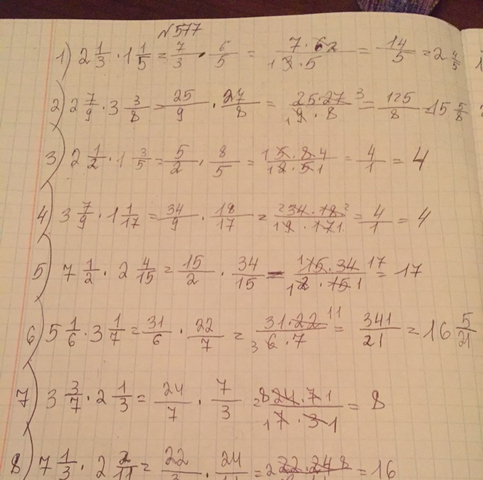 №577
1) 2 1/3 · 1 1/5 = 7/3 · 6/5 = 7·6 2/1 3·5 = 14/5 = 2 4/5
2) 2 7/9 · 3 3/8 = 25/9 · 27/8 = 25·27 3/1 9·8 = 125/8 = 15 5/8
3) 2 1/2 · 1 3/5 = 5/2 · 8/5 = 1 5·8 4/1 2·5 1 = 4/1 = 4
4) 3 7/9 · 1 1/17 = 34/9 · 18/17 = 2 34·18 2/1 9·17 1 = 4/1 = 4
5) 7 1/2 · 2 4/15 = 15/2 · 34/15 = 1 15·34 17/1 2·15 1 = 17
6) 5 1/6 · 3 1/7 = 31/6 · 22/7 = 31·22 11/3 6·7 = 341/21 = 16 5/21
7) 3 3/7 · 2 1/3 = 24/7 · 7/3 = 8 24·7 1/1 7·3 1 = 8
8) 7 1/3 · 2 2/11 = 22/3 · 24/11 = 2 22·24 8 = 16